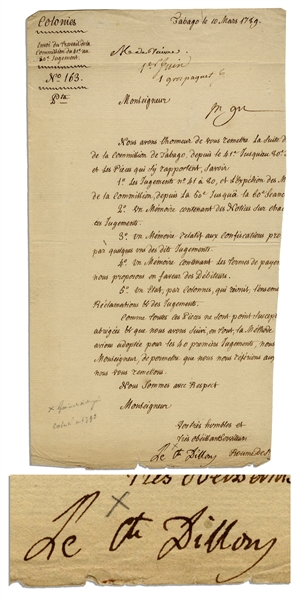 Colonies
Tabago le 10 Mars 1789.
Envoi du Travail de la
Commission du 41e au
80e Jugement.
No 163.
Monseigneur
Nous avons l'honneur de vous remettre la Suite d
de la commission de Tabago, depuis le 41e Jusqu'au 80e
et les Pieces qui s'y rapportent, savoir
1o Les Jugements no 41 à 80, et l'Expédition des M
de la Commission, depuis la 50e Jusqu'à la 60e
2o Un Mémoire contenant des Notices sur cha
Jugements.
3o Un Mémoire relatif aux Confiscations pro
par quelques uns des dits Jugements.
4o Un Mémoire Contenant les termes de paye
nous proposons en faveur des Débiteurs.
5o Un Etat, par Colonnes, qui réunit, l'ensem
Réclamations & des Jugements.
Comme toutes ces Pieces ne sont point Suscep
abrégés & que nous avons Suivi, en tout, la Méthode
avions adoptée pour les 40 premiers Jugements, nous
Monseigneur, de permettre que nous nous référions aux
nous vous remettons.
Nous Sommes avec Respect
Monseigneur
Vos très humbles et
Très obéissants serviteurs
Le Cte Dillon
Roume de S
Le Cte Dillon